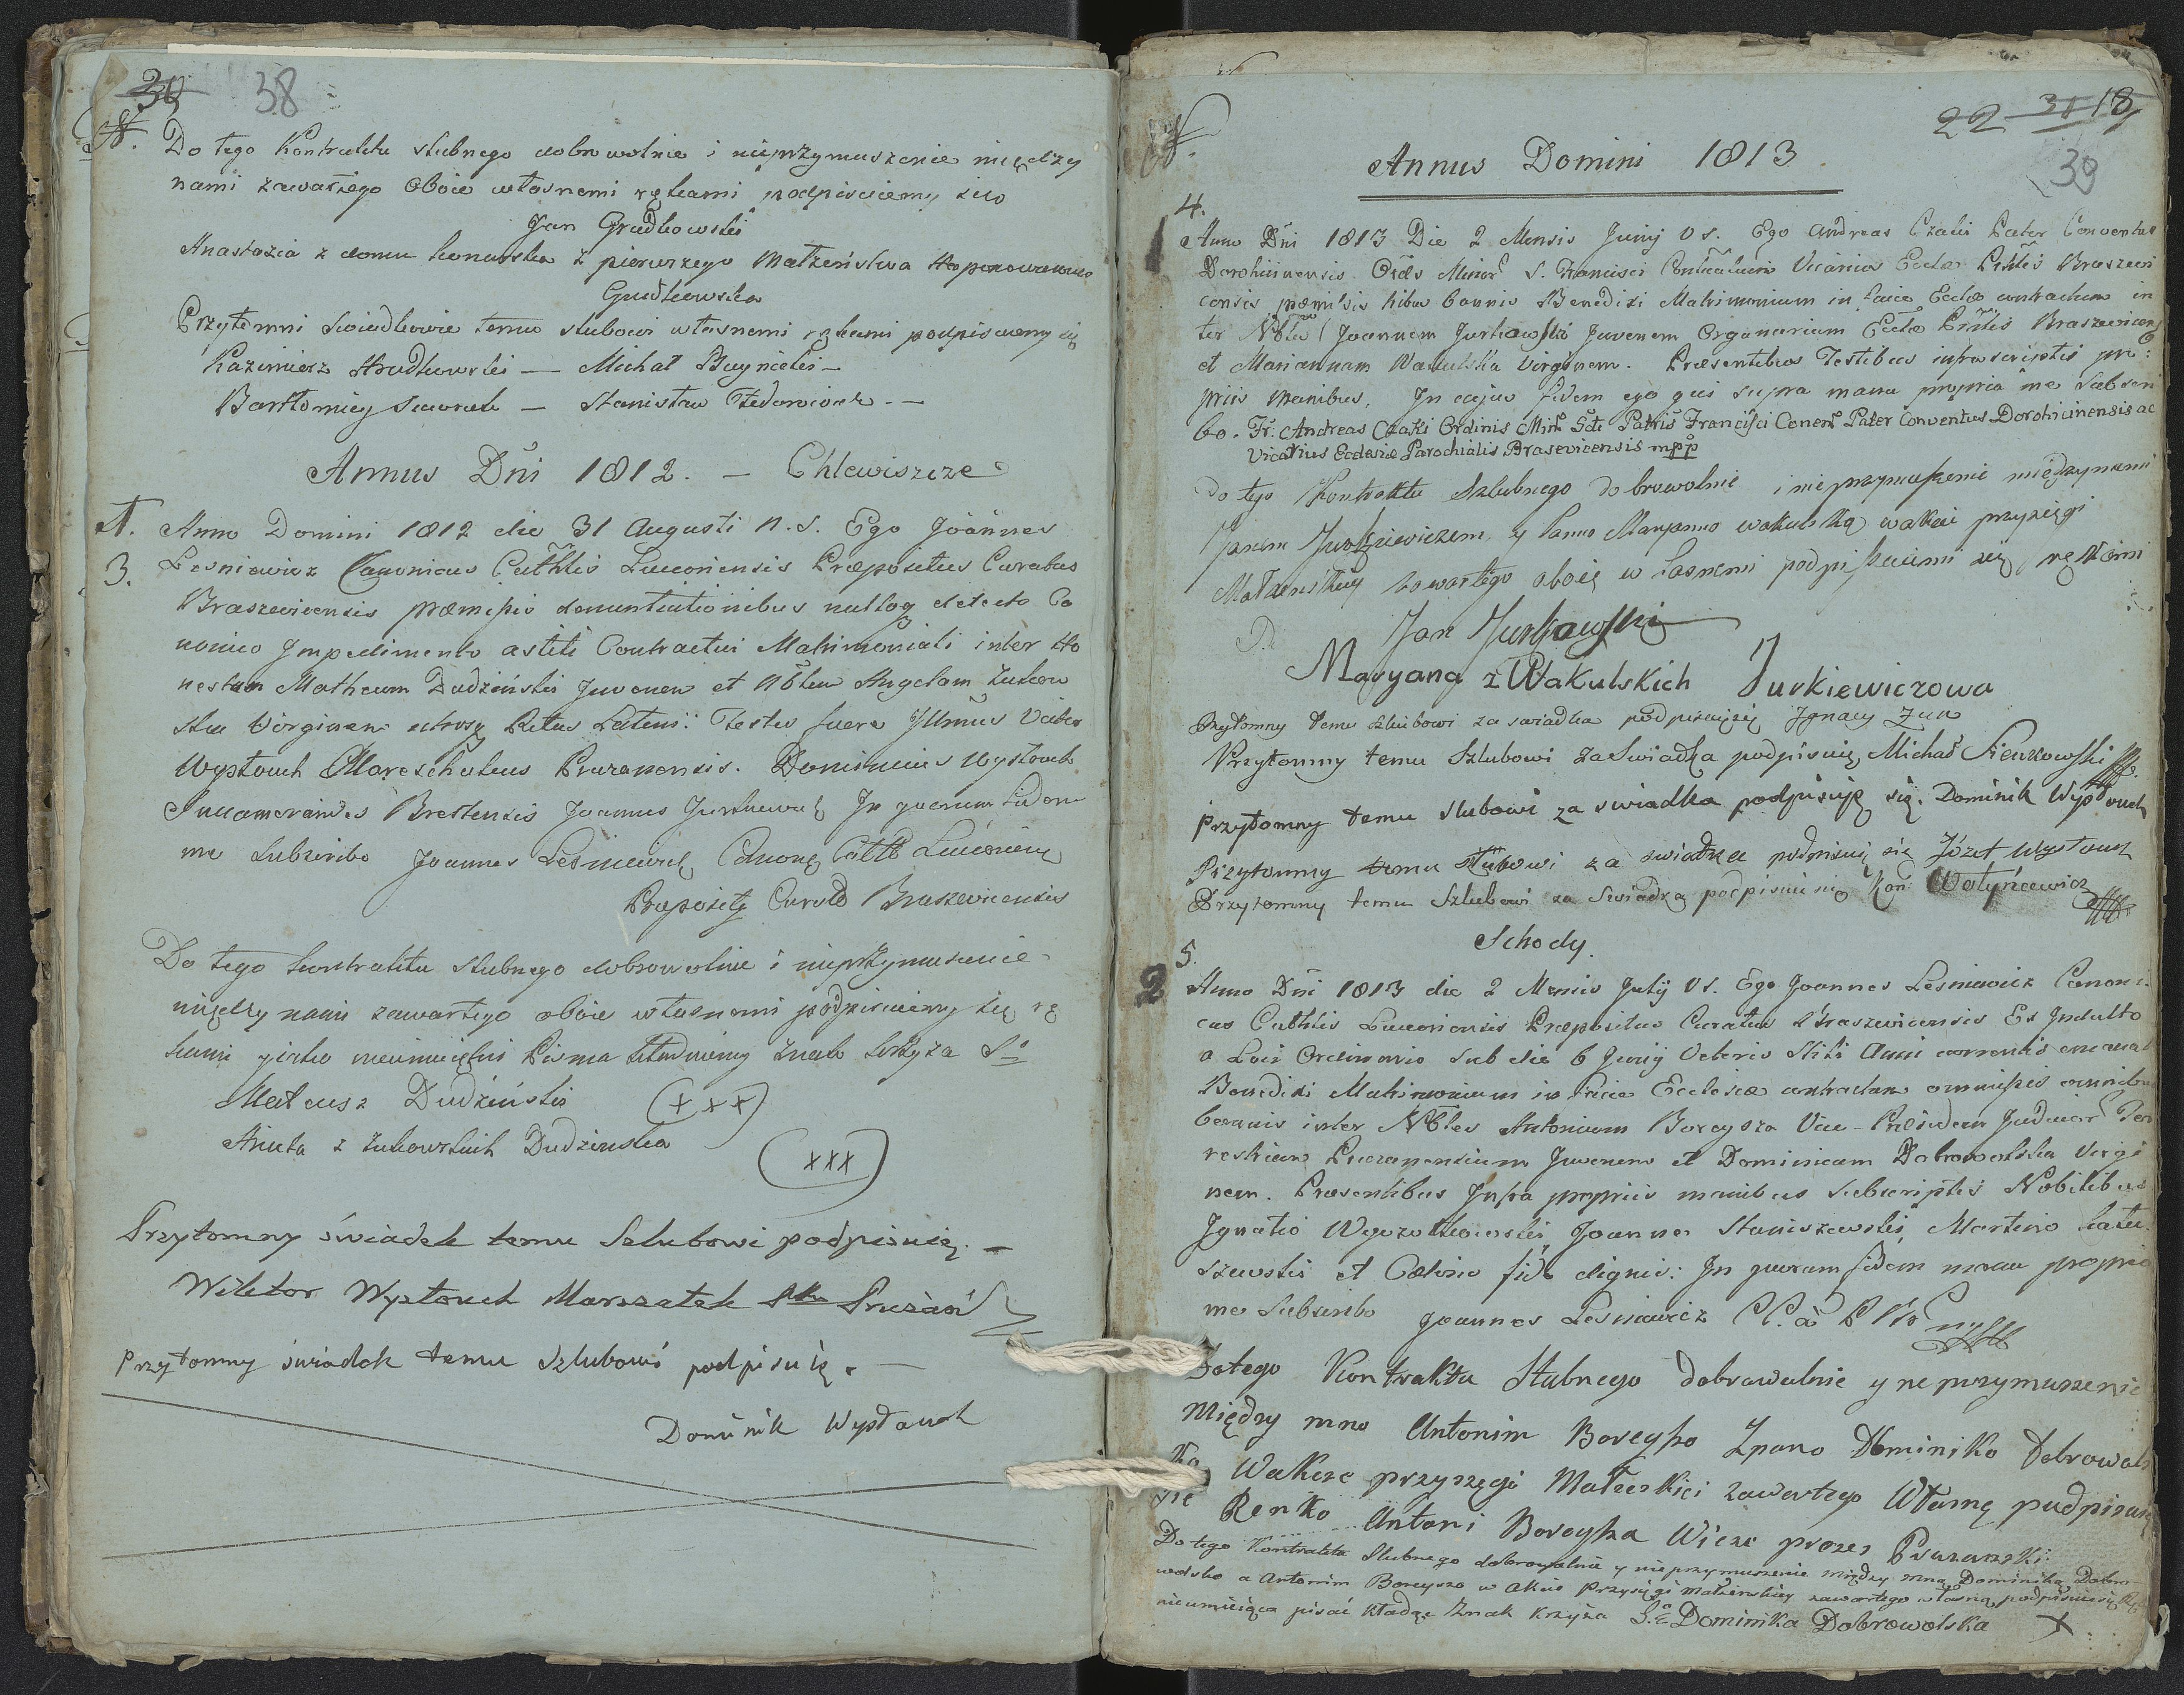 30 38
Do tego Kontraktu slubnego dobrowolnie i nieprzymuszenie między
nami zawartego oboie własnemi rękami podpisuiemy sie
Jan Grudkowski
Anastazia z domu z pierwszego Małżeństwa
Grudkowska
Przytomni swiadkowie temu slubowi własnemi rękami podpisuiemy się
Kazimierz — Michał —
Bartłomiey — Stanisław Fedorowicz —
Annus Dni 1812. — Chlewiszcze
3. Anno Domini 1812 die 31 Augusti n.s. Ego Joannes
Lesniewicz Canonicus Cathlis Luceoriensis Præpositus Curatus
Braszewicensis præmissis denuntiationibus nulloq detecto Ca
nonico Impedimento astiti Contractui Matrimoniali inter Ho
nestum Matheum Dudziński Juvenem et Nblem Angelam Zukow
ska Virginem utrosq Ritus Latini: Testes fuere Illmus Victor
Wysłouch Mareschalcus Pruzanensis. Dominicus Wysłouch
Brestensis Joannes In quorum fidem
me Subscribo Joannes Lesniewicz Canonq Cathl Luceorienq
Præpositq Curatq Braszewicensis
Do tego kontraktu slubnego dobrowolnie i nieprzymuszenie
między nami zawartego oboie własnemi podpisuiemy się rę
kami yiako nieumieiętni Pisma kładniemy Znak krzyża S:
Mateusz Dudziński (+++)
Aniela z Zukowskich Dudzinska
(XXX)
Przytomny świadek temu Szlubowi podpisuię. —
Wiktor Wysłouch Marszałek Ptu Pruzań
Przytomny swiadek temu szlubowi podpisuię. —
Dominik Wysłouch
22 31 18
39
Annus Domini 1813
4.
1 Anno Dni 1813 Die 2 Mensis Junij V S. Ego Andreas Czaki Pater Conventus
Dorohiinensis Ordis Minor S. Francisci Vicarius Eccla Braszewi
censis præmissis tribus bannis Benedixi Matrimonium in facie Eccla contractum in
ter Nbles Joannem Jurkowski Juvenem Organarium Eccla Braszewicens
et Mariannam Wakulska Virginem. Præsentibus Testibus infrascriptis pro:
priis manibus, In cujus fidem ego qui supra manu propria me Subscri
bo. Fr. Andreas Czaki Ordinis Min Sti Patris Francisci Convent Pater Conventus Dorohicinensis ac
Vicarius Ecclesiæ Parochialis Brasevicensis mpp
Do tego Kontraktu Szlubnego dobrowolnie i nieprzymuszenie międzynami
Janem Jurkiewiczem y Panno Maryanno wakulską wakcie przysięgi
Małżenskiey zawartego oboię własnemi podpiszuiemi się rękami
Jan Jurkowski
Maryana z Wakulskich Jurkiewiczowa
Przytomny temu szlubowi za swiadka podpisuięsię Jgnacy Zuk
Przytomny temu Szlubowi za Swiadka podpisuię Michał Sienkowski
Przytomny temu slubowi za swiadka podpisuję się. Dominik Wysłouch
Przytomny temu Slubowi za swiadka podpisuię się Józef Wysłouch
Przytomny temu Szlubowi za Swiadka podpisuie się Kon Wołyńcewicz
Schody.
5.
2 Anno Dni 1813 die 2 Mensis Julij V S. Ego Joannes Lesniewicz Canoni
cus Cathlis Luceoriensis Præpositus Curatus Braszewicensis Ex Indulto
a Loci Ordinario sub die 6 Junij Veteris Stili Anni currentis
Benedixi Matrimonium in facie Ecclesiæ contractum ommissis omnibus
bannis inter Nbles Antonium Boreysza Vice-Præsidem Judicior Ter
restrium Pruzanensium Juvenem et Dominicam Dobrowolska Virgi
nem. Præsentibus Infra propriis manibus subscriptis Nobilibus
Ignatio Joanne Staniszewski, Martino
szewski et Cæteris fide dignis: In quorum fidem manu propria
me Subscribo Joannes Lesniewicz
Dotego Kontraktu Slubnego dobrowalnie y neprzymuszenie
Między mno Antonim Boreyszo Zpano Dominiko Dobrowols
ko Wakcze przyszęgi Małzeskiei zawartego Własnę pudpisuię
się Renko Antoni Boreysza Wicze prezes Pruzanski.
Do tego Kontraktu Slubnego dobrowolnie y nieprzymuszenie między mną Dominiką Dobro
wolsko a Antonim Boreyszo w akcie Przysięgi małżenskiey zawartego własną podpisuiesię
nieumieiąca pisać kładąc Znak Krzyża S. Dominika Dobrowolska +